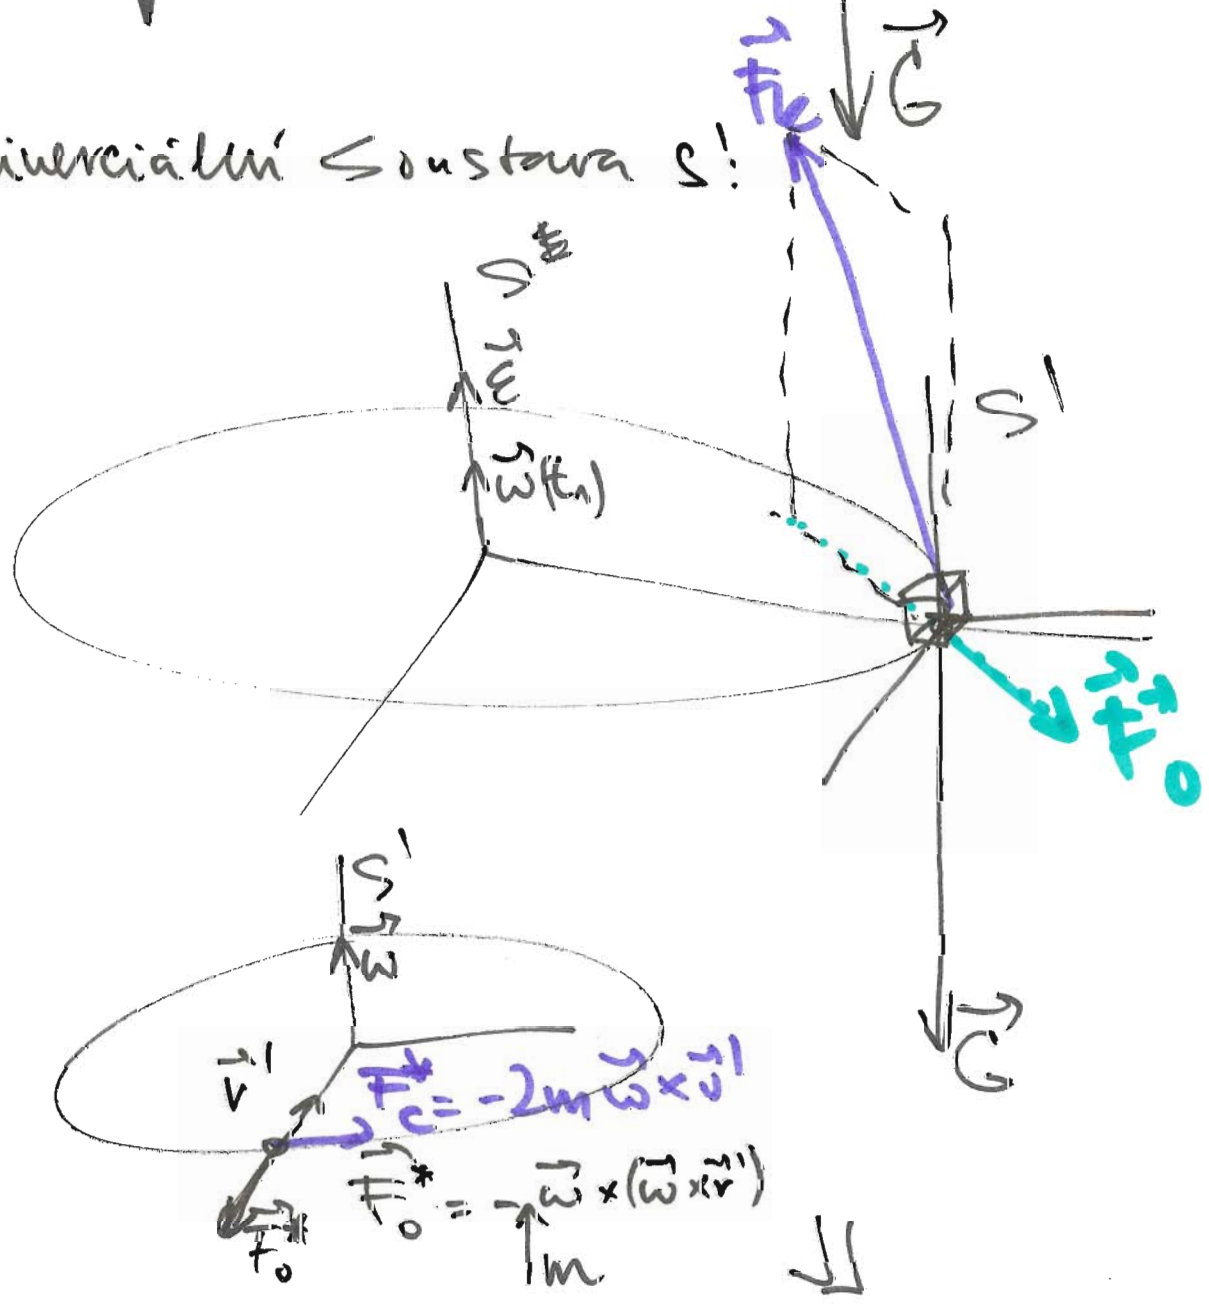 G⃗
inerciální soustava S'
S*
ε⃗
ω⃗(t₁)
S'
F⃗₀
S'
ω⃗
v⃗'
F⃗c* = -2mω⃗×v⃗'
F⃗₀* = -ω⃗×(ω⃗×r⃗')
F⃗₀*
m
G⃗